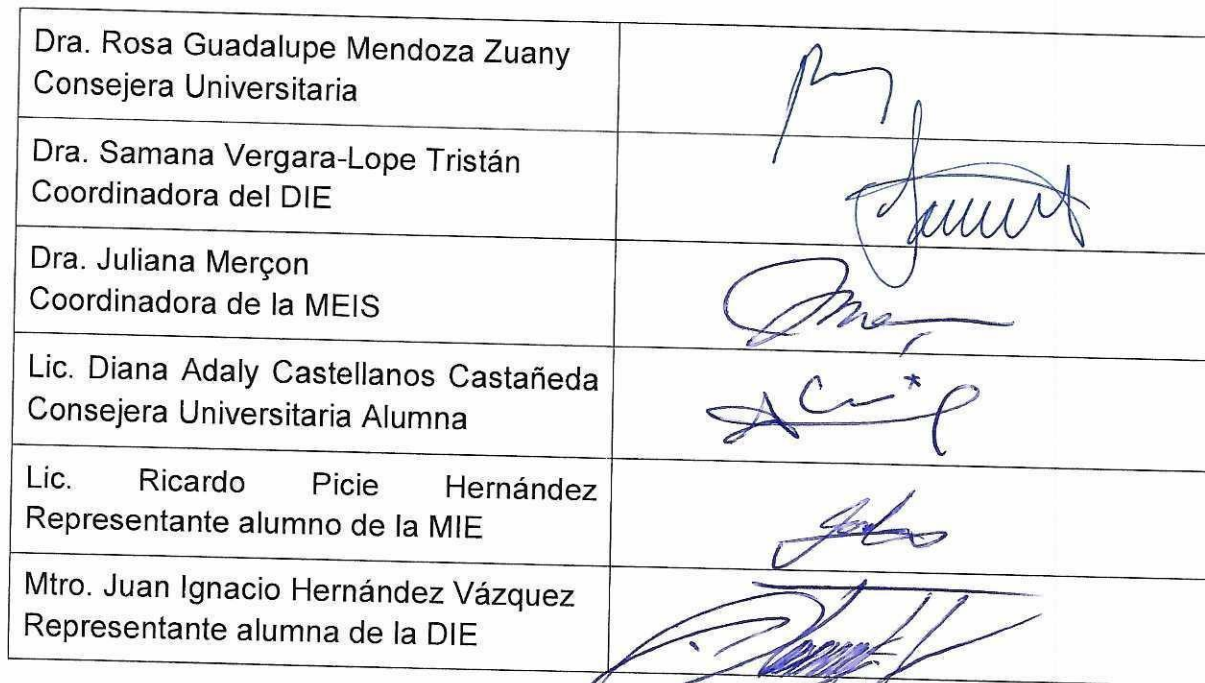 Dra. Rosa Guadalupe Mendoza Zuany
Consejera Universitaria
Dra. Samana Vergara-Lope Tristán
Coordinadora del DIE
Dra. Juliana Merçon
Coordinadora de la MEIS
Lic. Diana Adaly Castellanos Castañeda
Consejera Universitaria Alumna
Lic. Ricardo Picie Hernández
Representante alumno de la MIE
Mtro. Juan Ignacio Hernández Vázquez
Representante alumna de la DIE